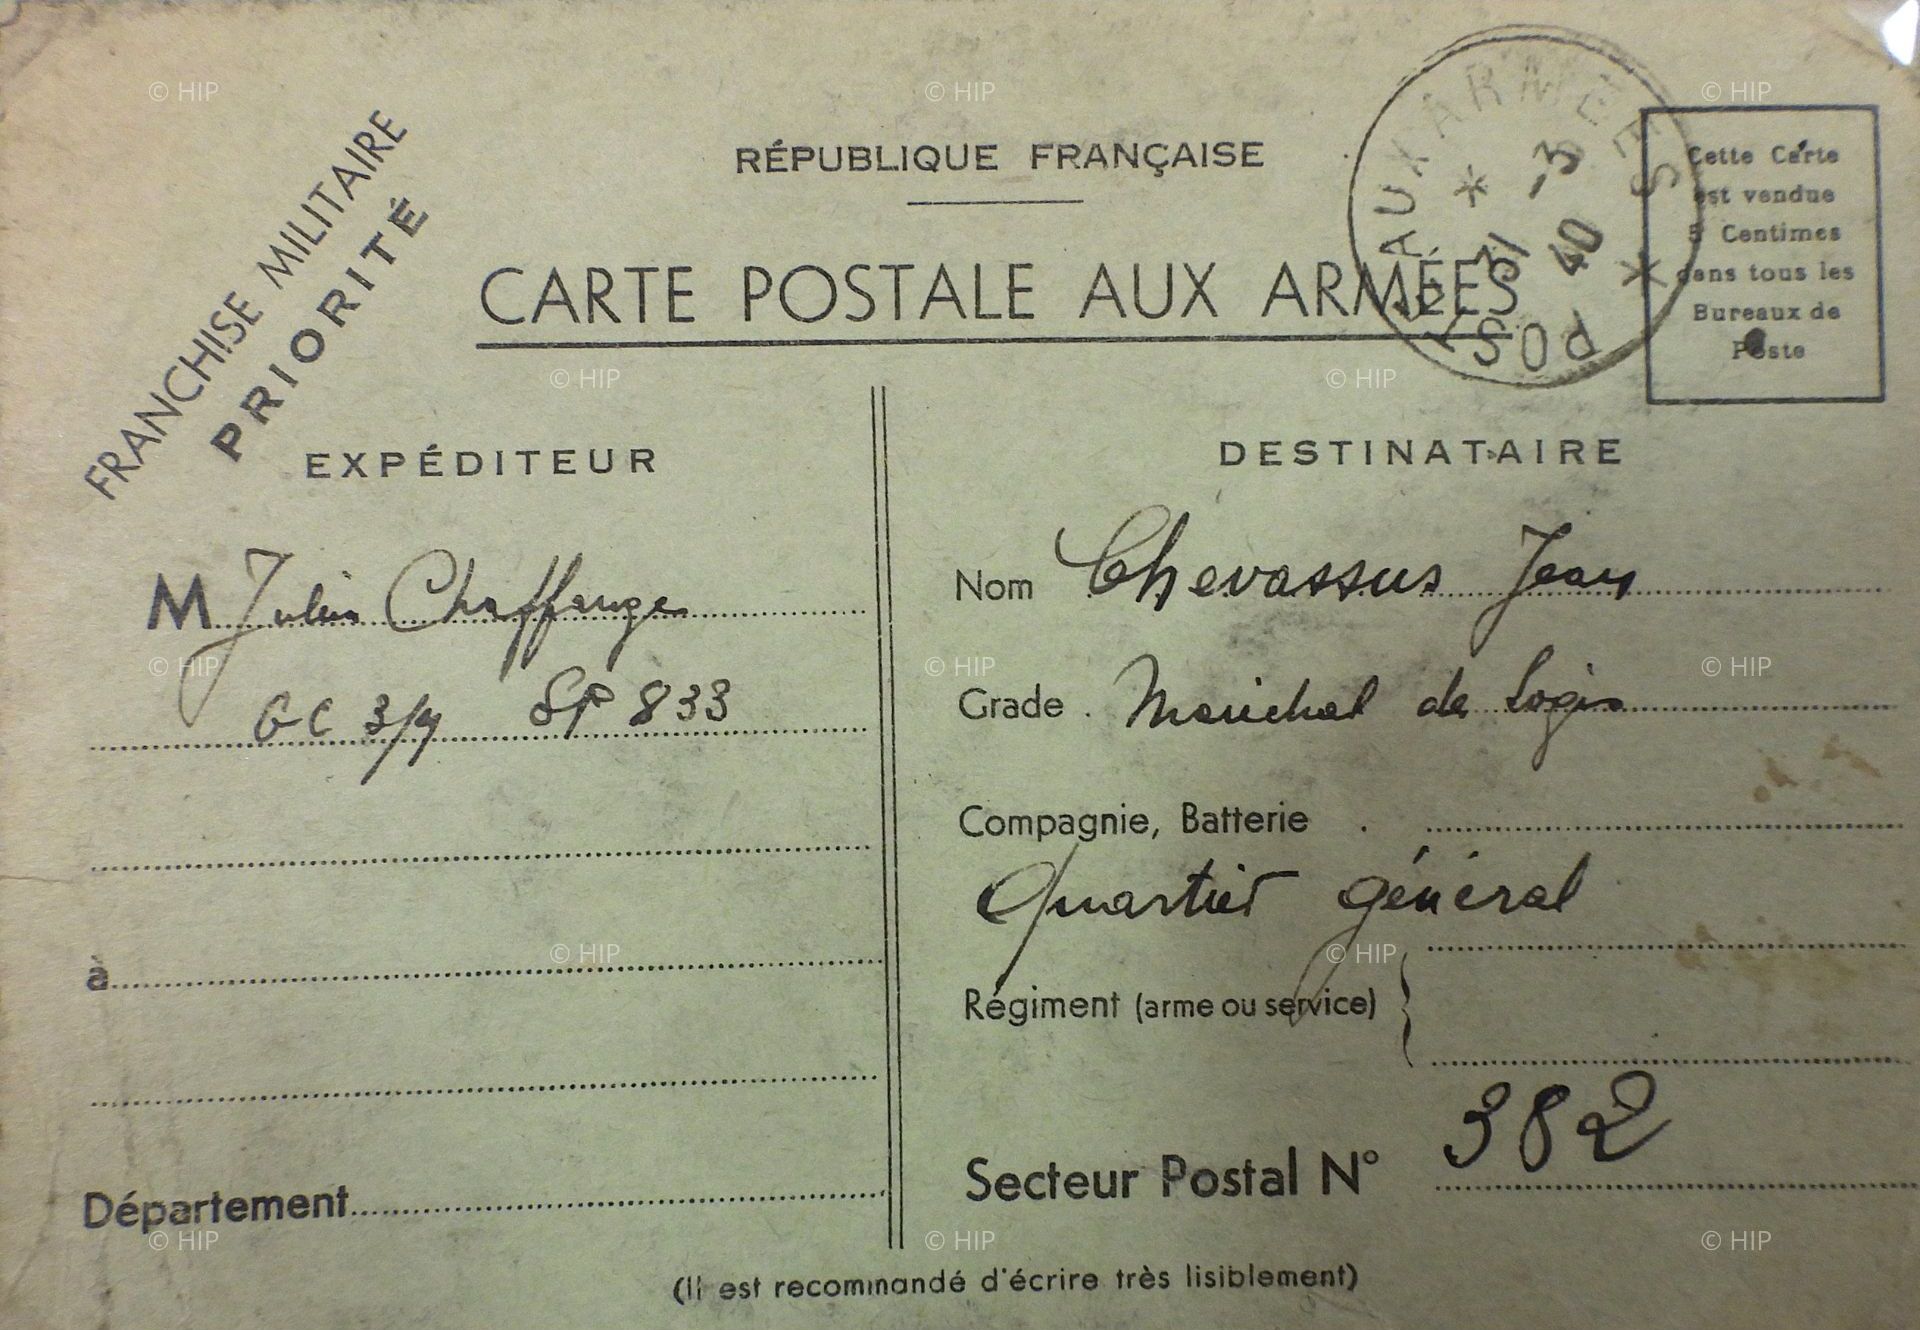 FRANCHISE MILITAIRE
PRIORITÉ
RÉPUBLIQUE FRANÇAISE
CARTE POSTALE AUX ARMÉES
POSTE AUX ARMÉES
* 31 -3 40 *
Cette Carte
est vendue
5 Centimes
dans tous les
Bureaux de
Poste
EXPÉDITEUR
M Julien Chaffanges
GC 3/9 SP 833
à
Département
DESTINATAIRE
Nom Chevassus Jean
Grade . Maréchal de Logis
Compagnie, Batterie .
Quartier général
Régiment (arme ou service)
Secteur Postal N° 382
(Il est recommandé d'écrire très lisiblement)
© HIP
© HIP
© HIP
© HIP
© HIP
© HIP
© HIP
© HIP
© HIP
© HIP
© HIP
© HIP
© HIP